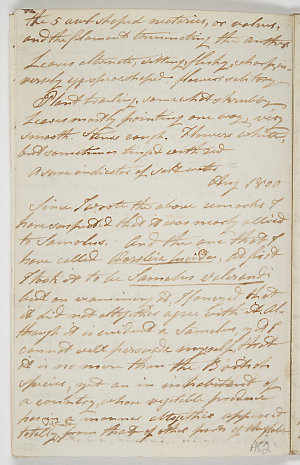 the 5 awl shaped nectaries, or valves,
and the filament terminating the anther
Leaves alternate, sitting, fleshy, sharp, in-
versely egg spear shaped flowers solitary
Plant trailing, somewhat shrubby
Leaves mostly pointing one way, very
smooth Stems rough. Flowers white,
but sometimes tinged with red
A sure indicator of salt water
Aug 1800
Since I wrote the above remarks I
have suspected that it was nearly allied
to Samolus. And the one that I
have called at first
I took it to be Samolus Valerandi
but on examining it, I found that
it did not altogether agree with it. Al-
though it is evident a Samolus, yet I
cannot well persuade myself that
it is no more than the British
species, yet an inhabitant of
a country, whose vegetable produce
is in a manner altogether opposed
totally from that of other parts of the globe
ARJ